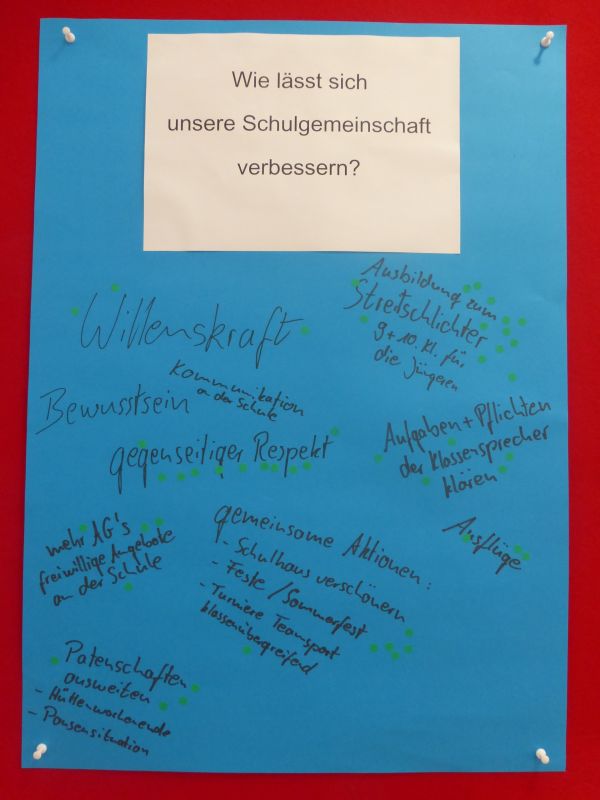 Wie lässt sich
unsere Schulgemeinschaft
verbessern?
Ausbildung zum
Streitschlichter
9+10. Kl. für
die Jüngeren
Willenskraft
Kommunikation
an der Schule
Bewusstsein
gegenseitiger Respekt
Aufgaben + Pflichten
der Klassensprecher
klären
Ausflüge
mehr AG's
freiwillige Angebote
an der Schule
gemeinsame Aktionen:
- Schulhaus verschönern
- Feste / Sommerfest
- Turniere Teamsport
klassenübergreifend
Patenschaften
ausweiten
- Hüttenwochenende
- Pausensituation